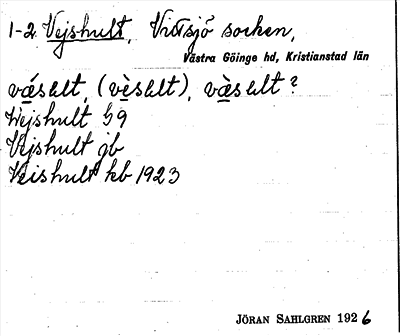 1-2 Vejshult, Vittsjö socken,
Västra Göinge hd, Kristianstad län
vá̤sɫlt, (vèsɫlt), và̤sɫlt?
Wejshult §9
Vejshult jb
Veishult kb 1923
JÖRAN SAHLGREN 1926